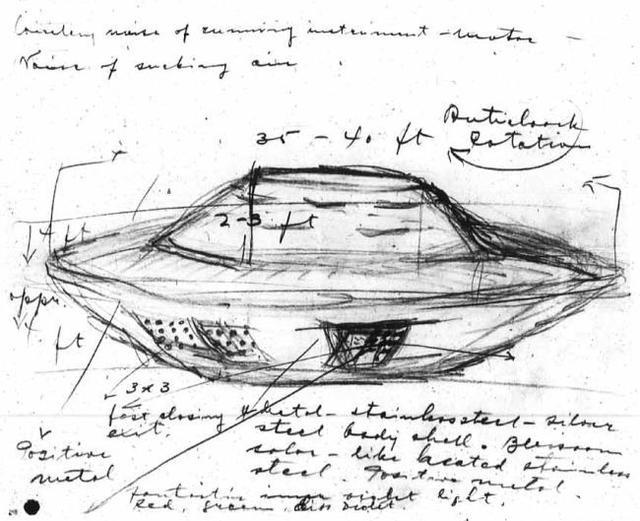 noise of running instrument - motor -
Noise of sucking air
35 - 40 ft
Anticlock
Rotation
2-3 ft
4 ft
appr.
4 ft
3x3
fast closing
exit.
Metal - stainless steel - silver
steel body shell.
color - like heated stainless
steel. Positive metal.
Positive
metal
Fantastic inner violet light,
Red, green, violet.